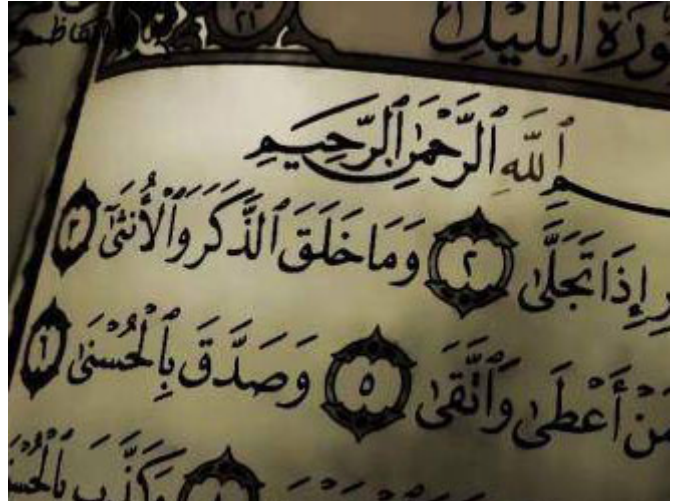 سُورَةُ اللَّيْلِ ٢١
ٱللَّهِ ٱلرَّحْمَٰنِ ٱلرَّحِيمِ
إِذَا تَجَلَّىٰ ٢ وَمَا خَلَقَ ٱلذَّكَرَ وَٱلْأُنثَىٰٓ ٣
مَنْ أَعْطَىٰ وَٱتَّقَىٰ ٥ وَصَدَّقَ بِٱلْحُسْنَىٰ ٦
وَكَذَّبَ بِٱلْحُسْنَىٰ